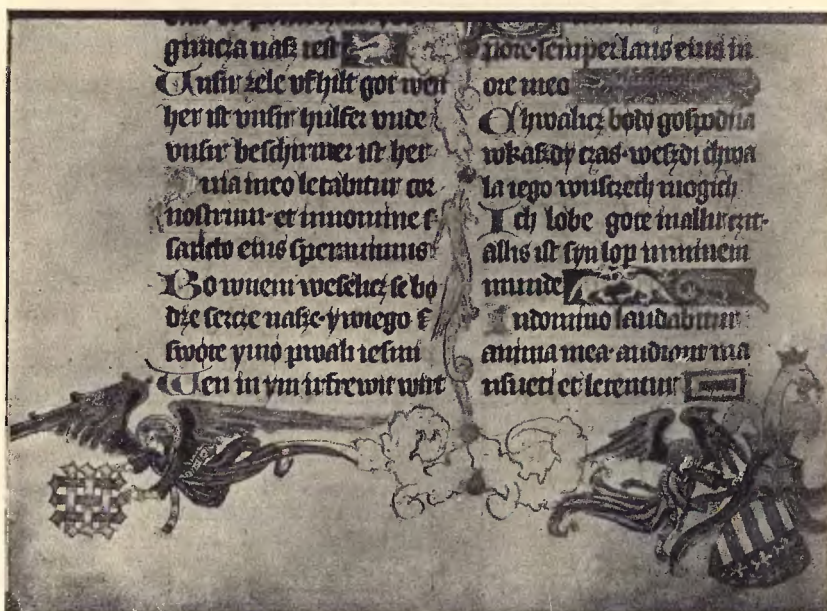 naſz ieſt
Unſir zele vfhilt got wen
her iſt vnſir hulfer vnde
vnſir beſchirmer iſt her
uia in eo letabitur cor
noſtrum et in nomine
ſancto eius ſperauimus
Bo wnem weſelicz ſe bo
dze ſercze naſze ywiego
ſwote ymo pwali ieſmi
Wen in ym irfrewit wirt
pore ſemper laus eius in
ore meo
Chwalicz bodo goſpodna
wkaſzdy czas weſzdi chwa
la iego wuſczech mogich
Ich lobe gote in allir czit
allis iſt ſyn lop in minem
munde
In domino laudabitur
anima mea audiant ma
nſueti et letentur